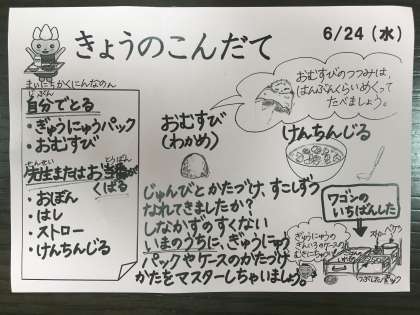 きょうのこんだて
6/24（水）
まいにちかくにんなのん
じぶん
自分でとる
・ぎゅうにゅうパック
・おむすび
せんせい とうばん
先生またはお当番が
くばる
・おぼん
・はし
・ストロー
・けんちんじる
おむすびのつつみは、
はんぶんくらいめくって
たべましょう。
おむすび
（わかめ）
けんちんじる
じゅんびとかたづけ、すこしずつ
なれてきましたか？
しなかずのすくない
いまのうちに、ぎゅうにゅう
パックやケースのかたづけ
かたをマスターしちゃいましょう。
ワゴンの
いちばんした
ぎゅうにゅうの